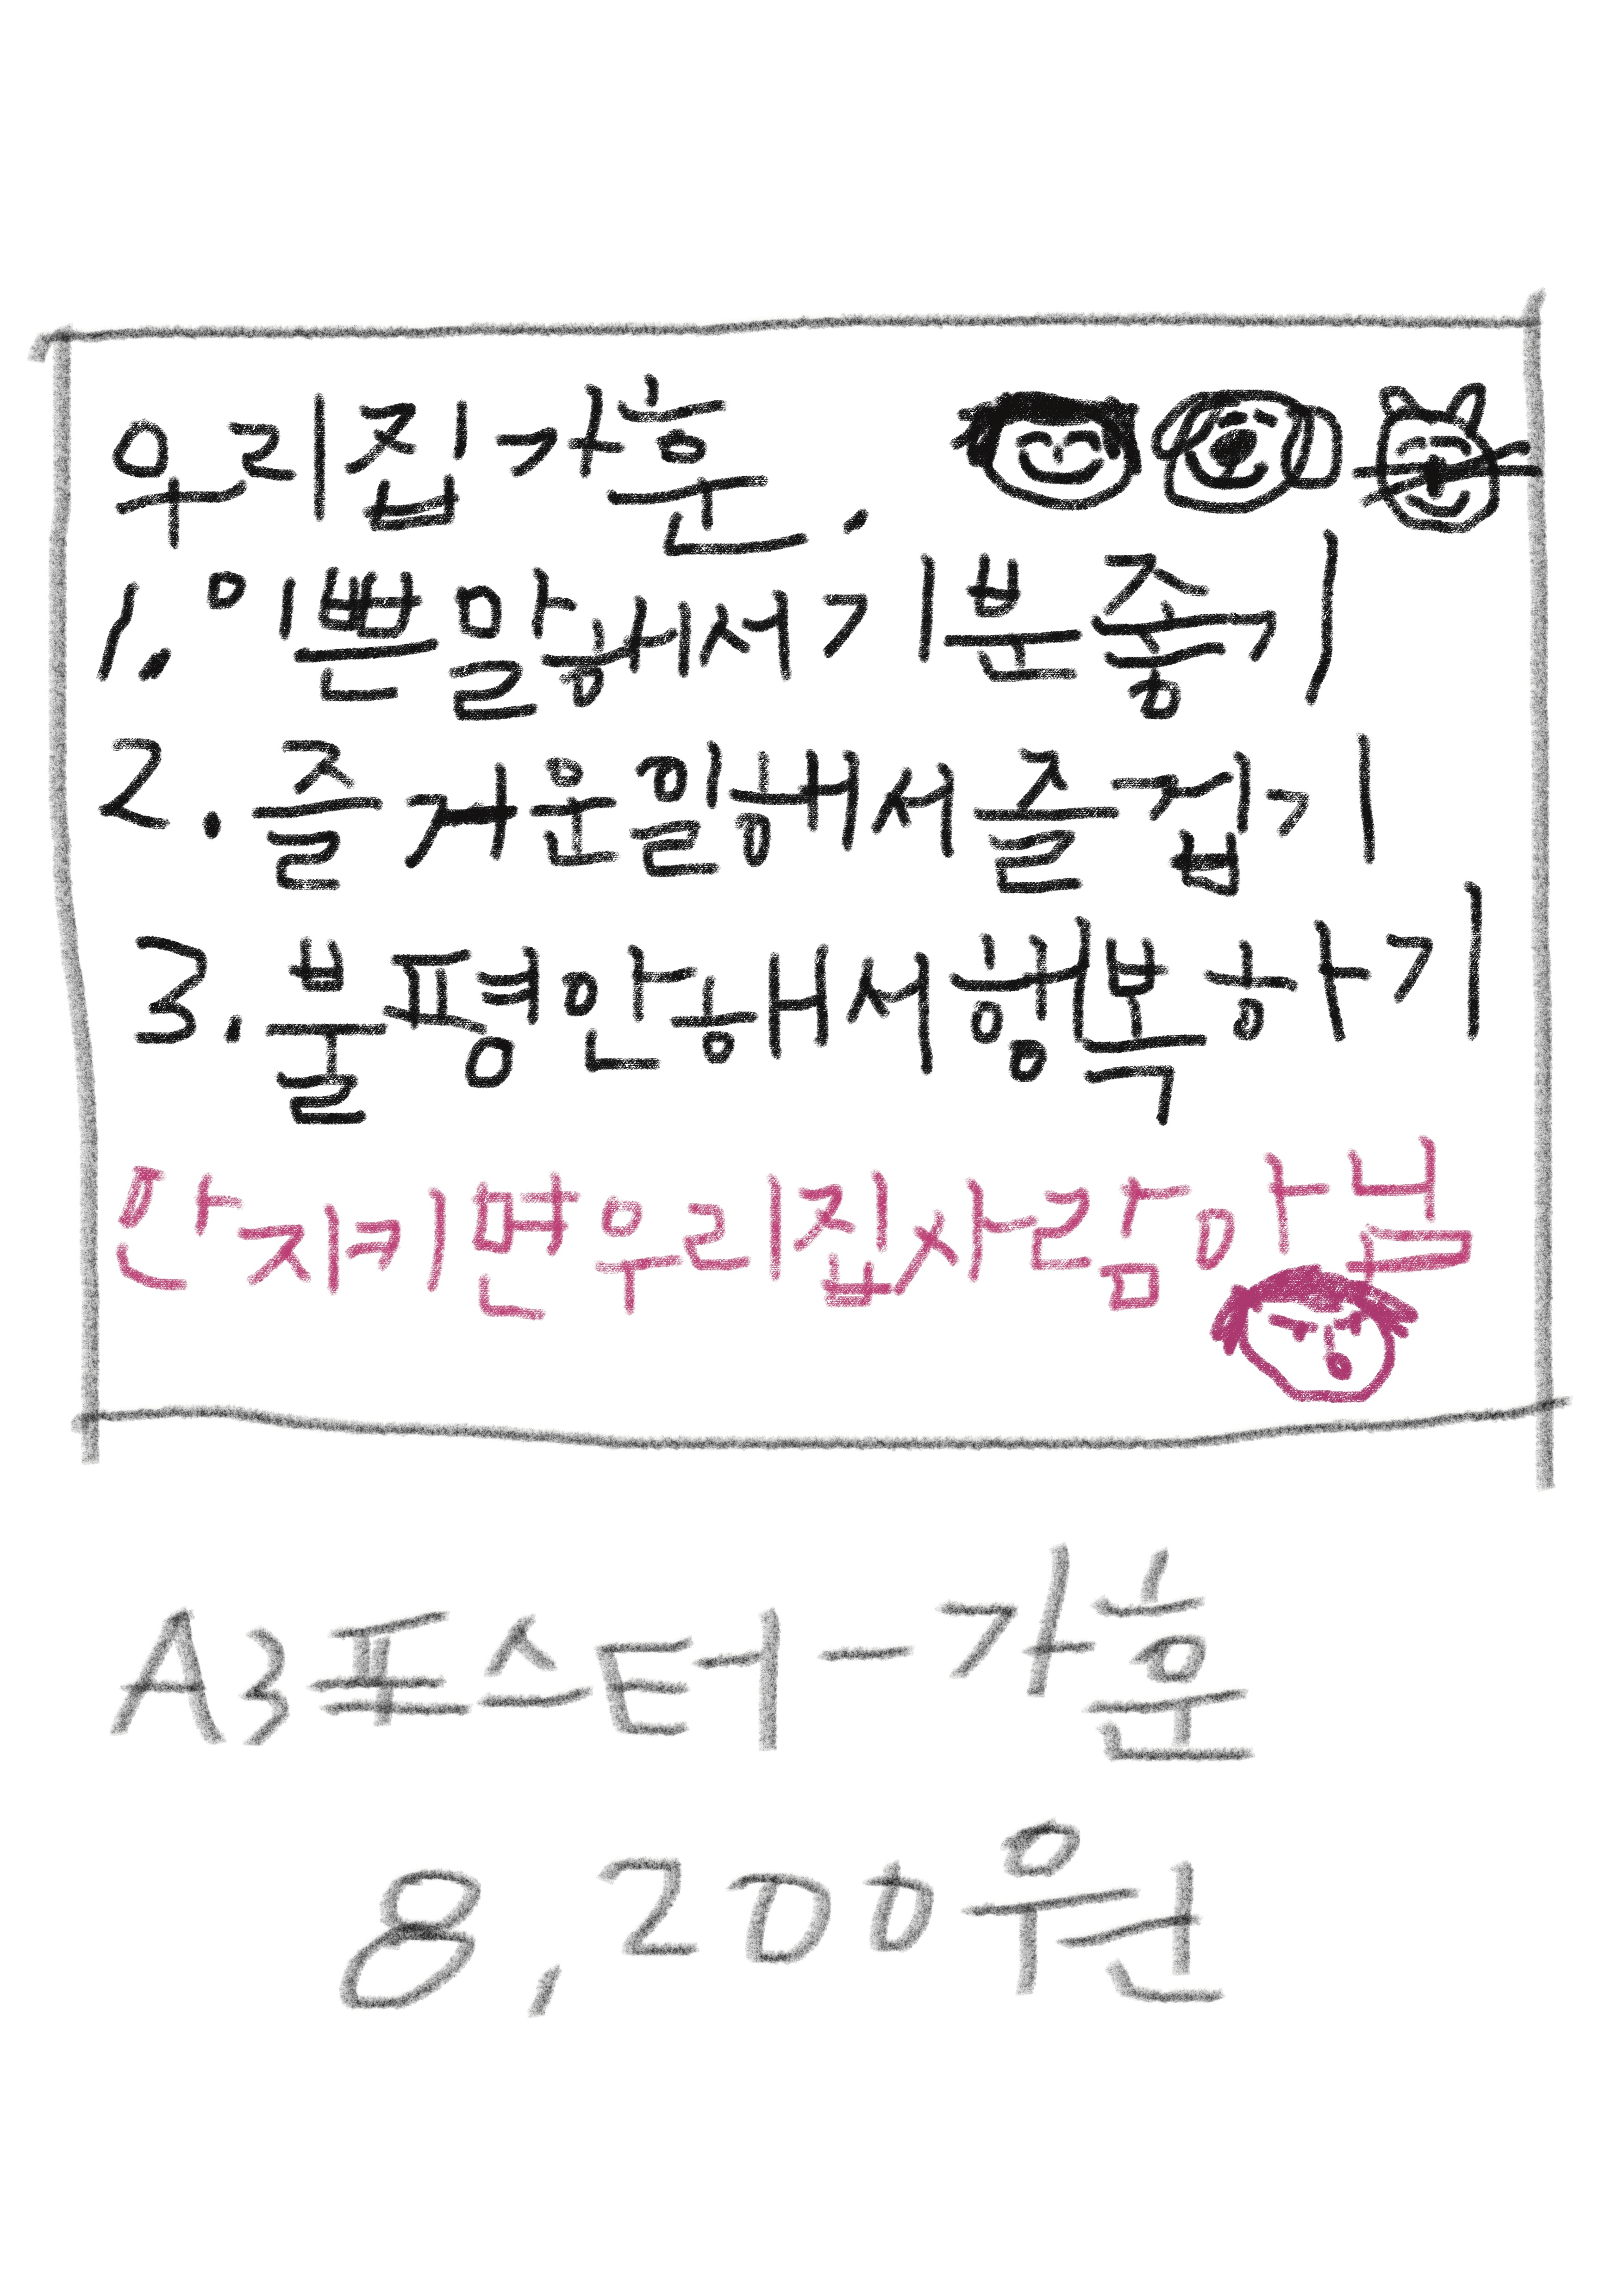 우리집가훈.
1. 이쁜말해서기분좋기
2. 즐거운일해서즐겁기
3. 불평안해서행복하기
안지키면우리집사람아님
A3포스터-가훈
8,200원